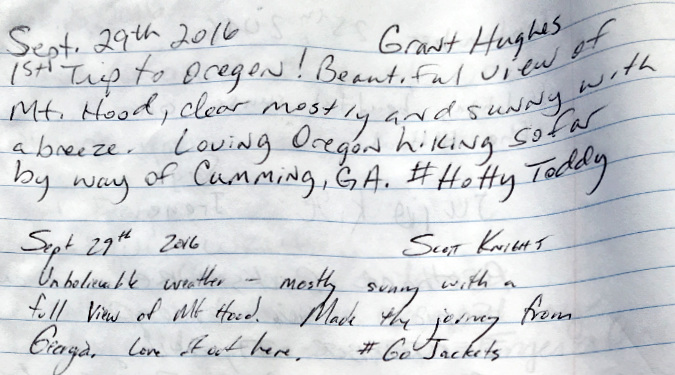 Sept. 29th 2016 Grant Hughes
1st Trip to Oregon! Beautiful view of
Mt. Hood, clear mostly and sunny with
a breeze. Loving Oregon hiking so far
by way of Cumming, GA. #Hotty Toddy
Sept 29th 2016 Scot Knight
Unbelievable weather - mostly sunny with a
full view of Mt Hood. Made the jorney from
Georgia. Love it out here. #Go Jackets